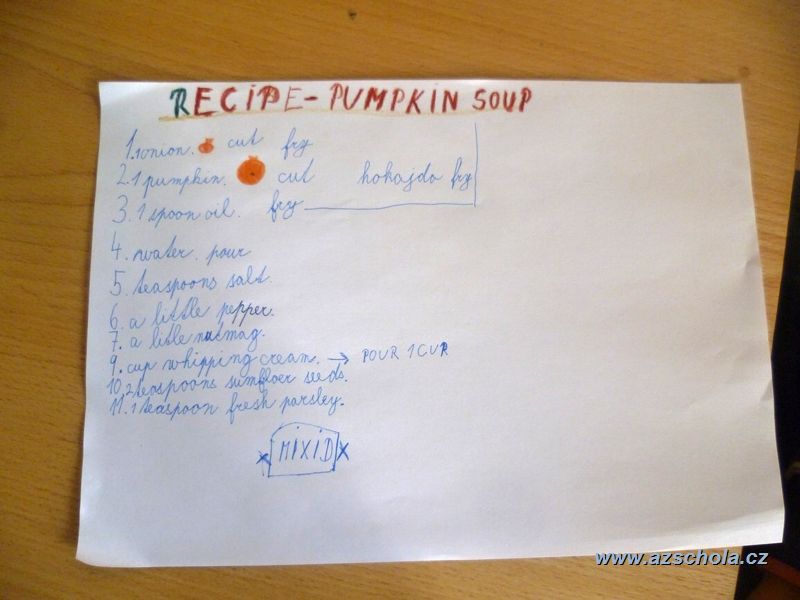 RECIPE - PUMPKIN SOUP
1. 1 onion. cut fry
2. 1 pumpkin. cut hokajdo fry
3. 1 spoon oil. fry
4. water. pour
5. teaspoons salt.
6. a little pepper.
7. a litle nutmag.
9. cup whipping cream. → POUR 1 CUP
10. 2 teaspoons sunfloer seeds.
11. 1 teaspoon fresh parsley.
MIXID
www.azschola.cz